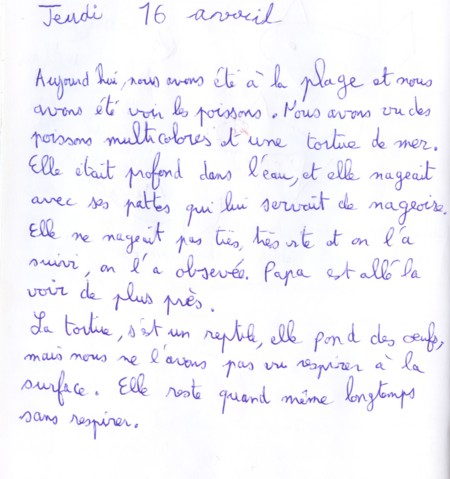 Jeudi 16 avroil
Aujourd'hui, nous avons été à la plage et nous
avons été voir les poissons. Nous avons vu des
poissons multicolores et une tortue de mer.
Elle était profond dans l'eau, et elle nageait
avec ses pattes qui lui servait de nageoire.
Elle ne nageait pas très, très vite et on l'a
suivi, on l'a observée. Papa est allé la
voir de plus près.
La tortue, s'est un reptile, elle pond des œufs,
mais nous ne l'avons pas vu respirer à la
surface. Elle reste quand même longtemps
sans respirer.